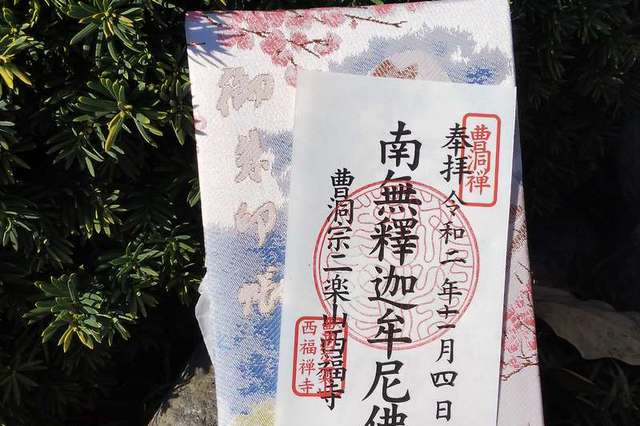 曹洞禅
奉拝 令和二年十一月四日
南無釋迦牟尼佛
曹洞宗二楽山西福寺
西福禅寺
御朱印帳